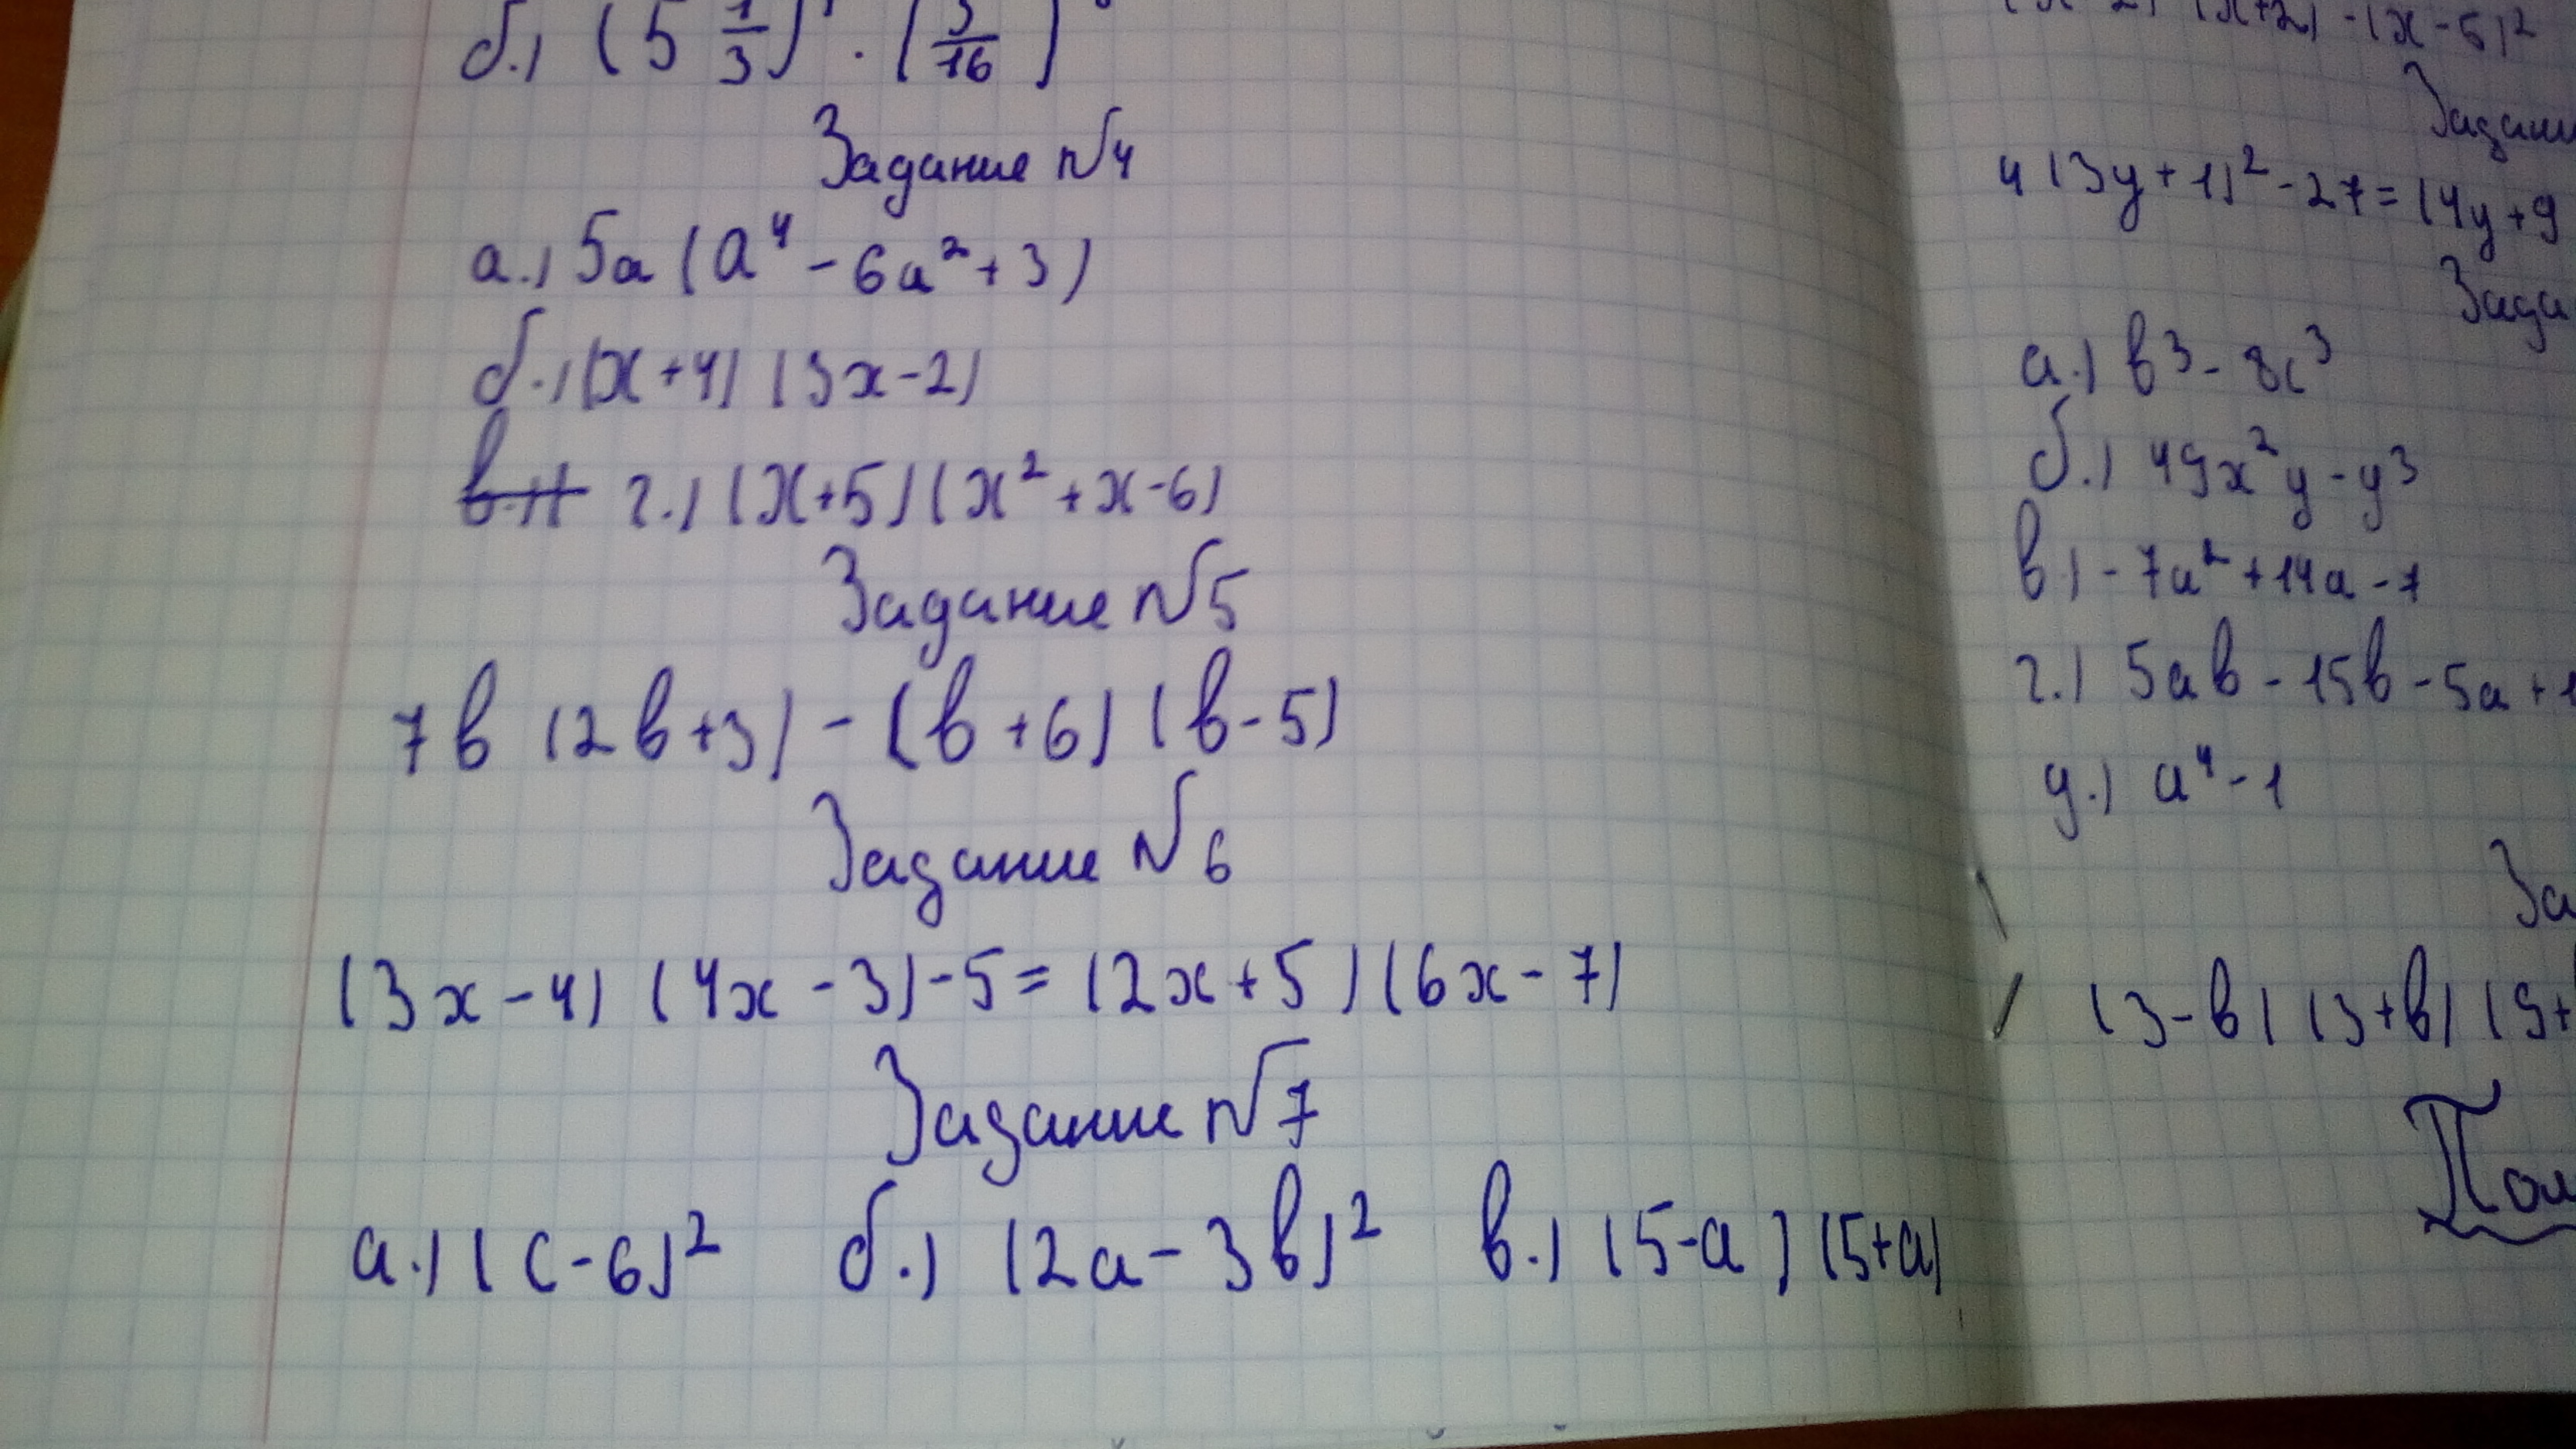 б.) (5 1/3) · (3/16)
Задание №4
а.) 5a (a⁴ - 6a² + 3)
б.) (x+4) (3x-2)
г.) (x+5) (x² + x - 6)
Задание №5
7в (2в+3) - (в+6) (в-5)
Задание №6
(3x-4) (4x-3) - 5 = (2x+5) (6x-7)
Задание №7
а.) (c-6)² б.) (2a-3в)² в.) (5-a) (5+a)
(x+2) - (x-5)²
4(3y+1)² - 27 = (4y+9
а.) в³ - 8c³
б.) 49x²y - y³
в.) -7a² + 14a - 7
г.) 5aв - 15в - 5a + 1
д.) a⁴ - 1
(3-в) (3+в) (9+